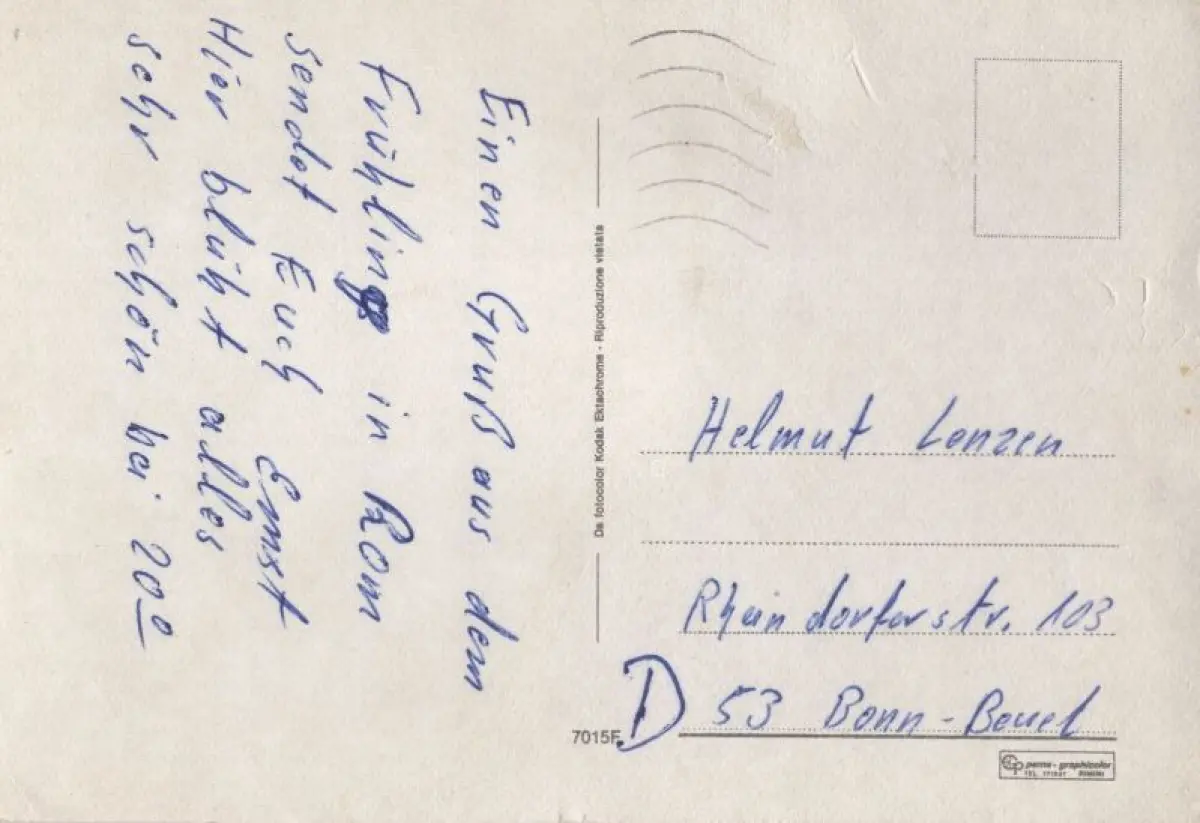 Einen Gruß aus dem
Frühling in Rom
sendet Euch Ernst
Hier blüht alles
sehr schön bei 20º
Da fotocolor Kodak Ektachrome - Riproduzione vietata
Helmut Lenzen
Rheindorferstr. 103
D 53 Bonn-Beuel
7015F
graphicolor
TEL.